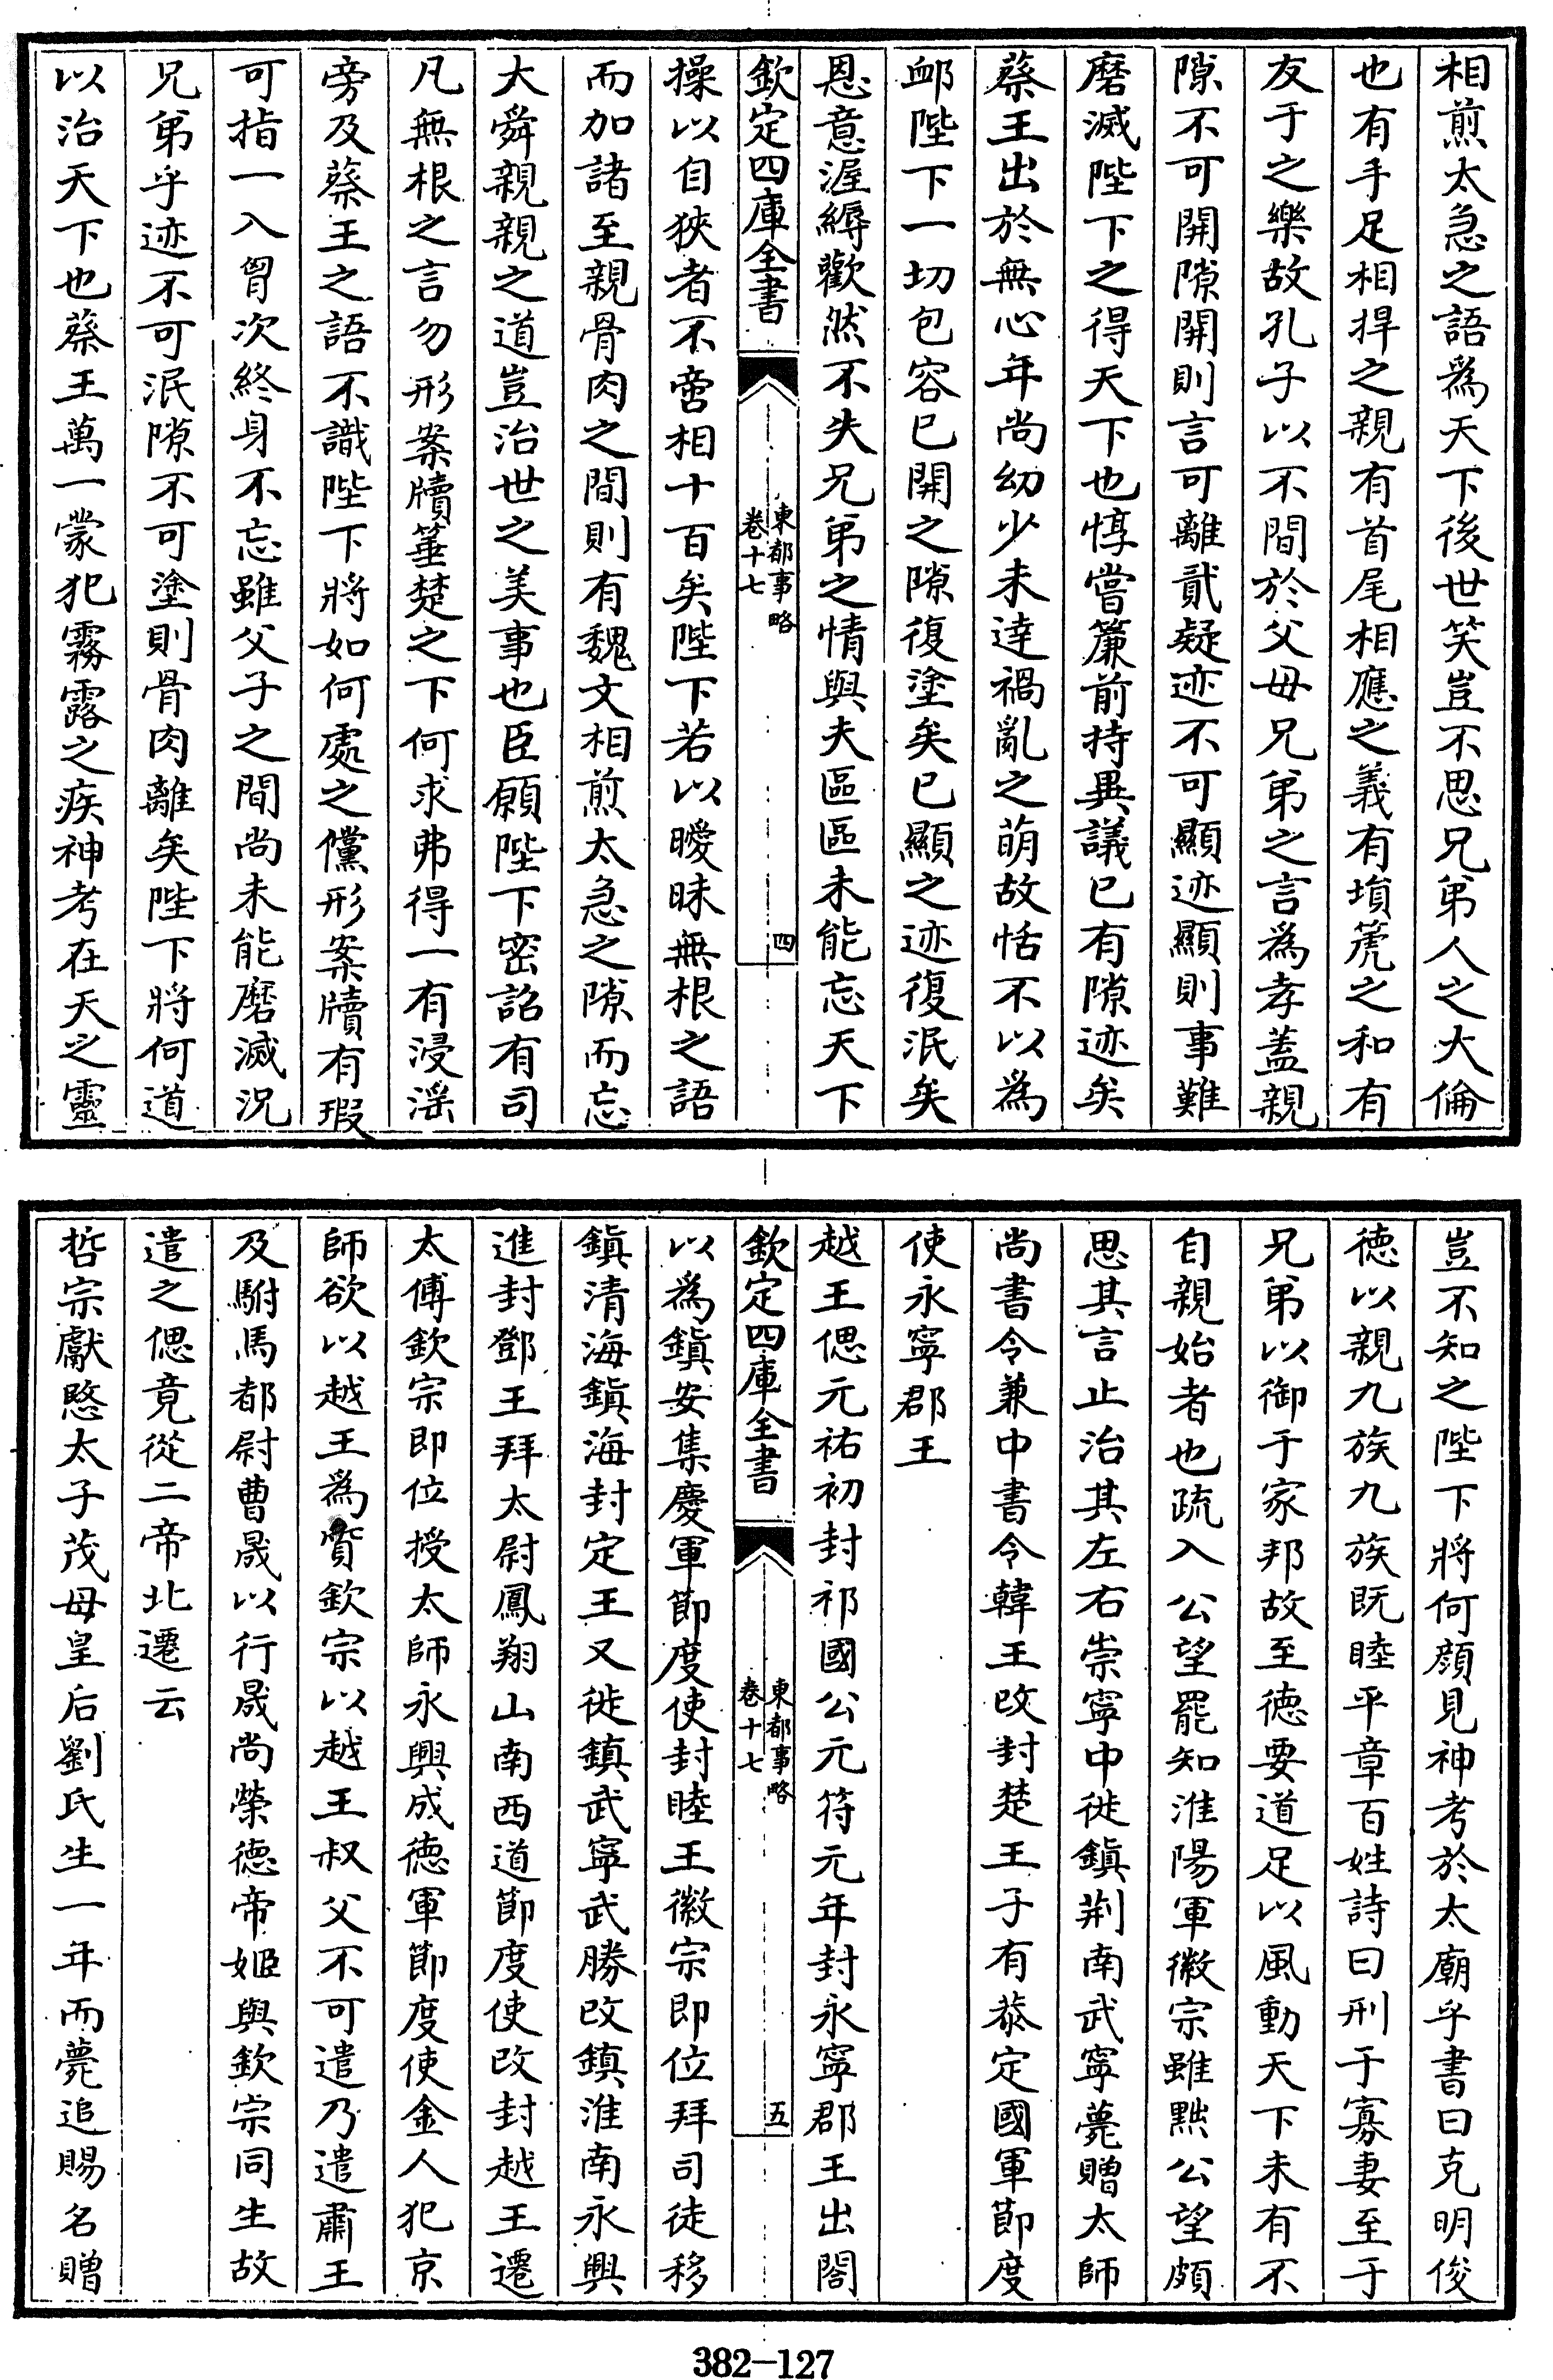 相煎太急之語爲天下後世笑豈不思兄弟人之大倫
也有手足相捍之親有首尾相應之義有塤箎之和有
友于之樂故孔子以不間於父母兄弟之言爲孝蓋親
隙不可開隙開則言可離貳疑迹不可顯迹顯則事難
磨滅陛下之得天下也惇嘗簾前持異議已有隙迹矣
蔡王出於無心年尚幼少未逹禍亂之萌故恬不以爲
卹陛下一切包容已開之隙復塗矣已顯之迹復泯矣
恩意渥縟歡然不失兄弟之情與夫區區未能忘天下
欽定四庫全書
東都事略
卷十七
四
操以自狹者不啻相十百矣陛下若以曖昧無根之語
而加諸至親骨肉之間則有魏文相煎太急之隙而忘
大舜親親之道豈治世之美事也臣願陛下密詔有司
凡無根之言勿形案牘箠楚之下何求弗得一有浸滛
旁及蔡王之語不識陛下將如何處之儻形案牘有瑕
可指一入胷次終身不忘雖父子之間尚未能磨滅況
兄弟乎迹不可泯隙不可塗則骨肉離矣陛下將何道
以治天下也蔡王萬一蒙犯霧露之疾神考在天之靈
豈不知之陛下將何顔見神考於太廟乎書曰克明俊
德以親九族九族既睦平章百姓詩曰刑于寡妻至于
兄弟以御于家邦故至德要道足以風動天下未有不
自親始者也疏入公望罷知淮陽軍徽宗雖黜公望頗
思其言止治其左右崇寧中徙鎮荆南武寧薨贈太師
尚書令兼中書令韓王改封楚王子有恭定國軍節度
使永寧郡王
越王偲元祐初封祁國公元符元年封永寧郡王出閤
欽定四庫全書
東都事略
卷十七
五
以爲鎮安集慶軍節度使封睦王徽宗即位拜司徒移
鎮清海鎮海封定王又徙鎮武寧武勝改鎮淮南永興
進封鄧王拜太尉鳳翔山南西道節度使改封越王遷
太傅欽宗即位授太師永興成德軍節度使金人犯京
師欲以越王爲質欽宗以越王叔父不可遣乃遣肅王
及駙馬都尉曹晟以行晟尚榮德帝姬與欽宗同生故
遣之偲竟從二帝北遷云
哲宗獻愍太子茂母皇后劉氏生一年而薨追賜名贈
382-127